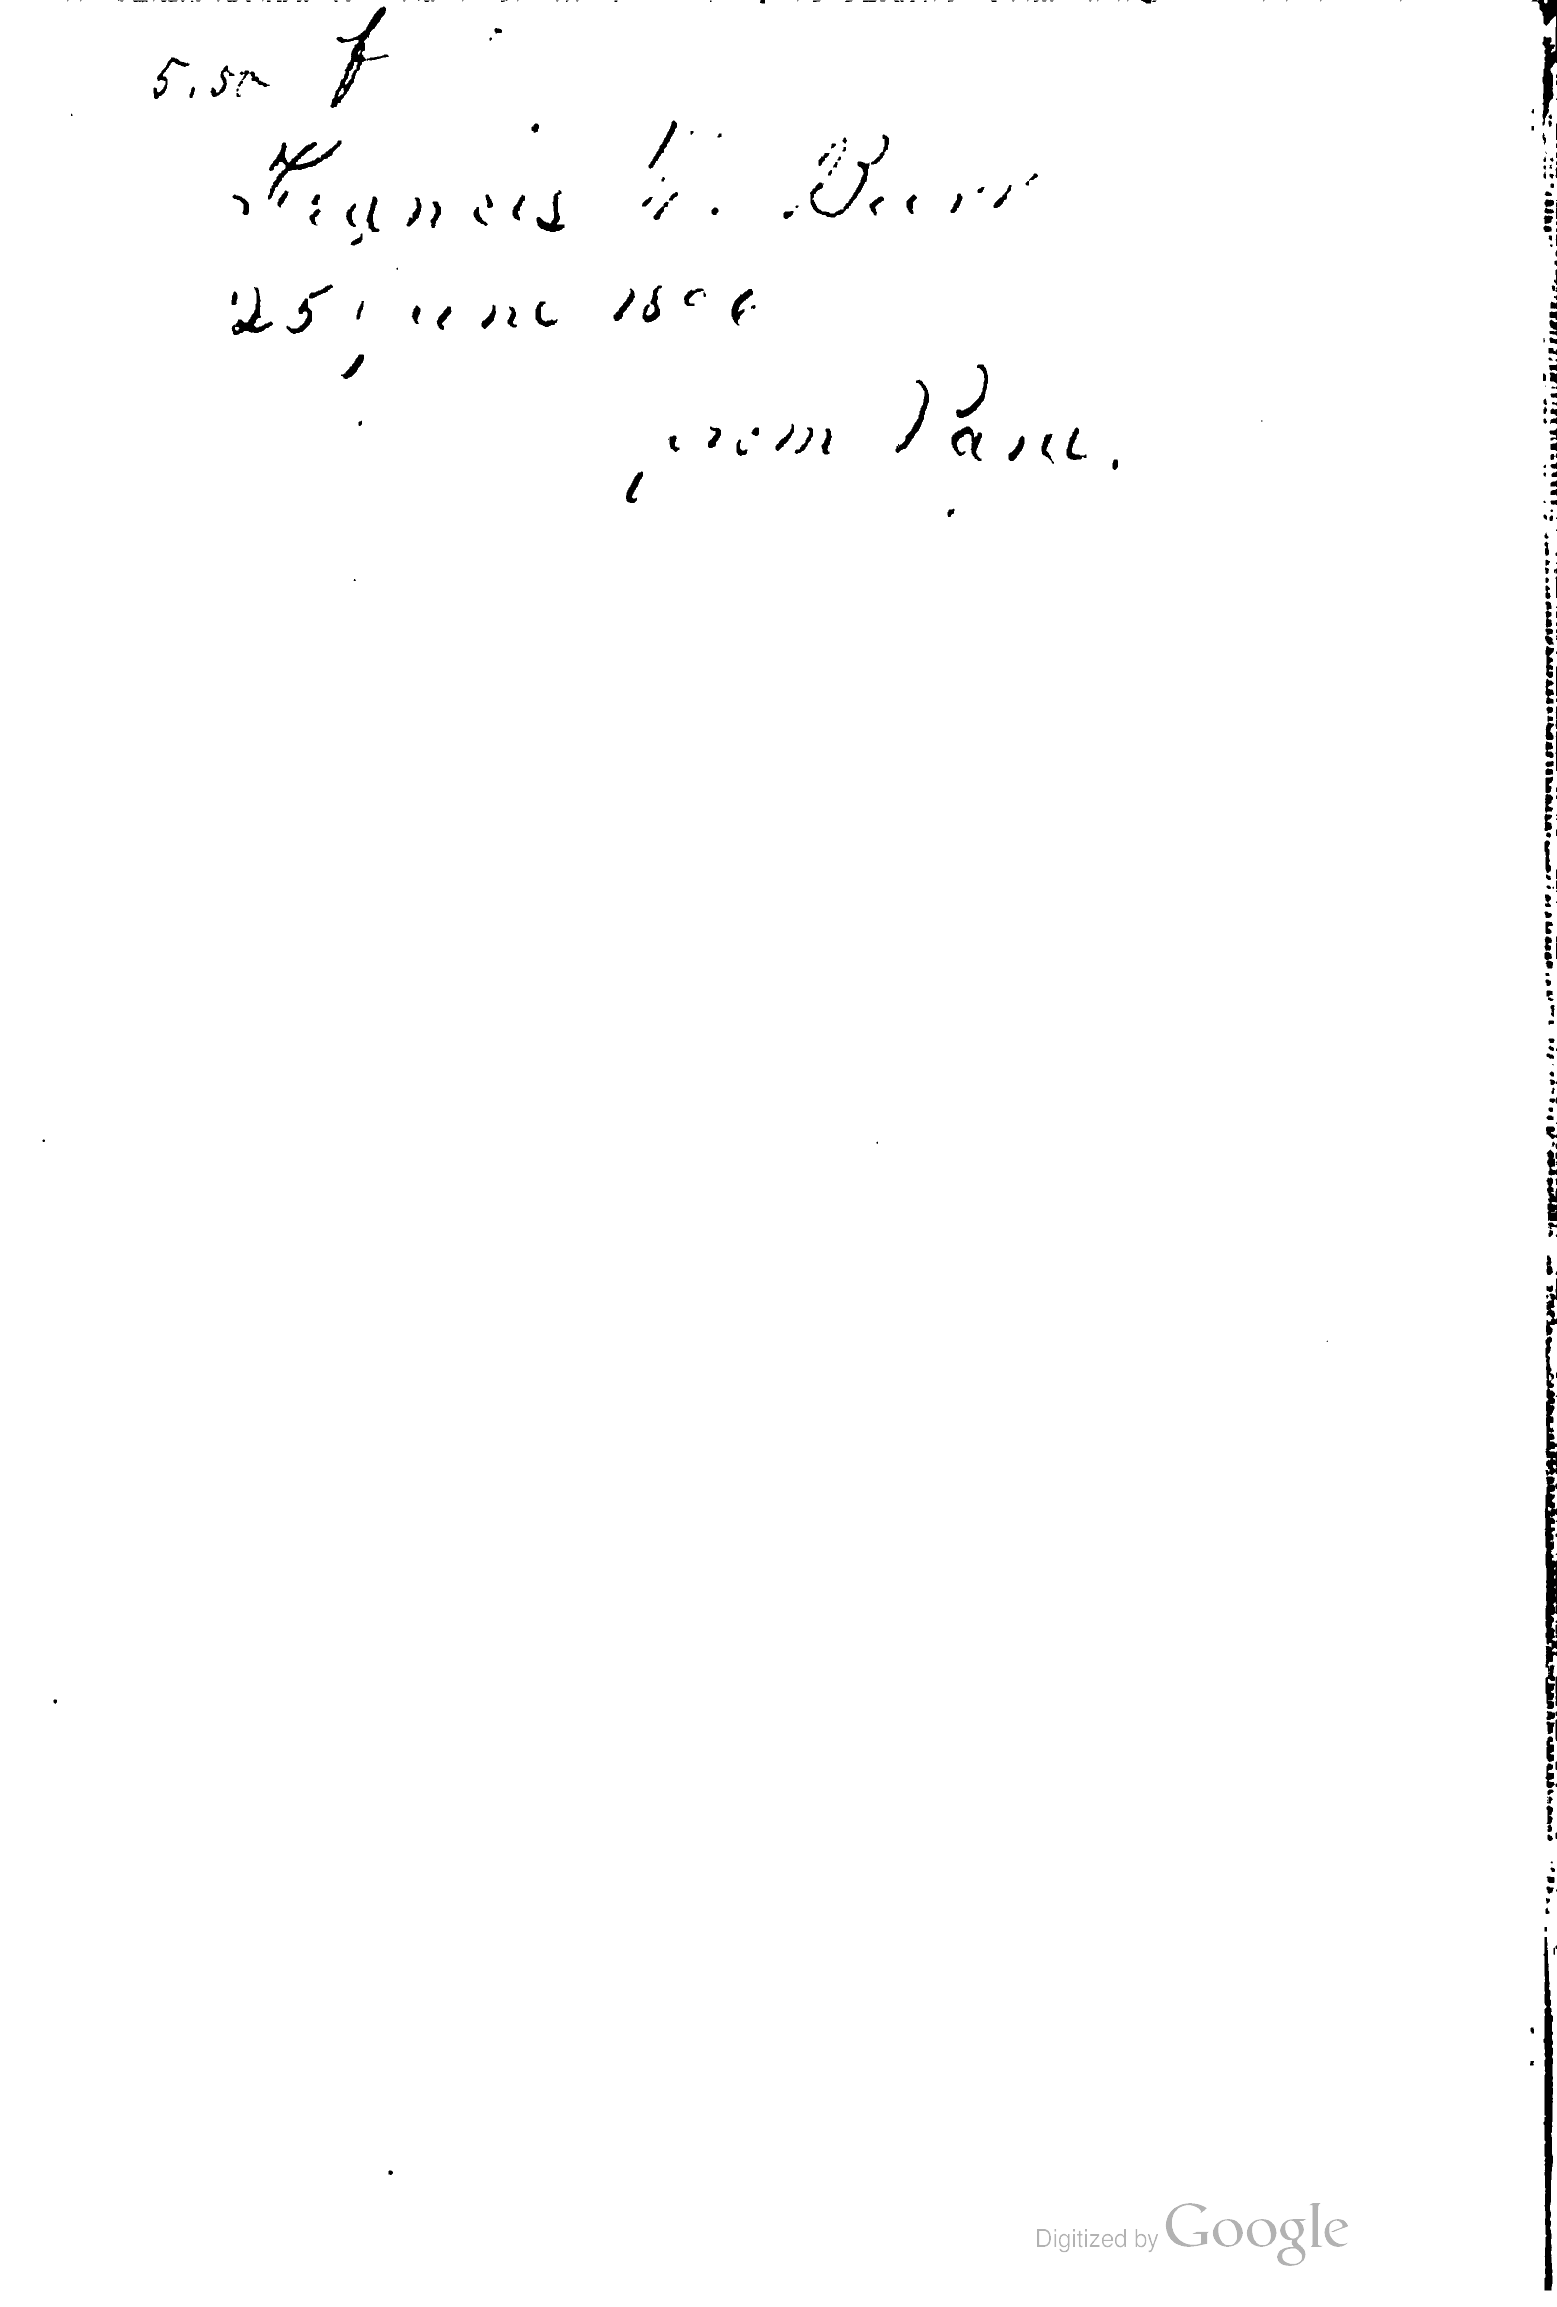 5.50 f
Francis H. Burr
25 June 1806
from Paul.
Digitized by Google